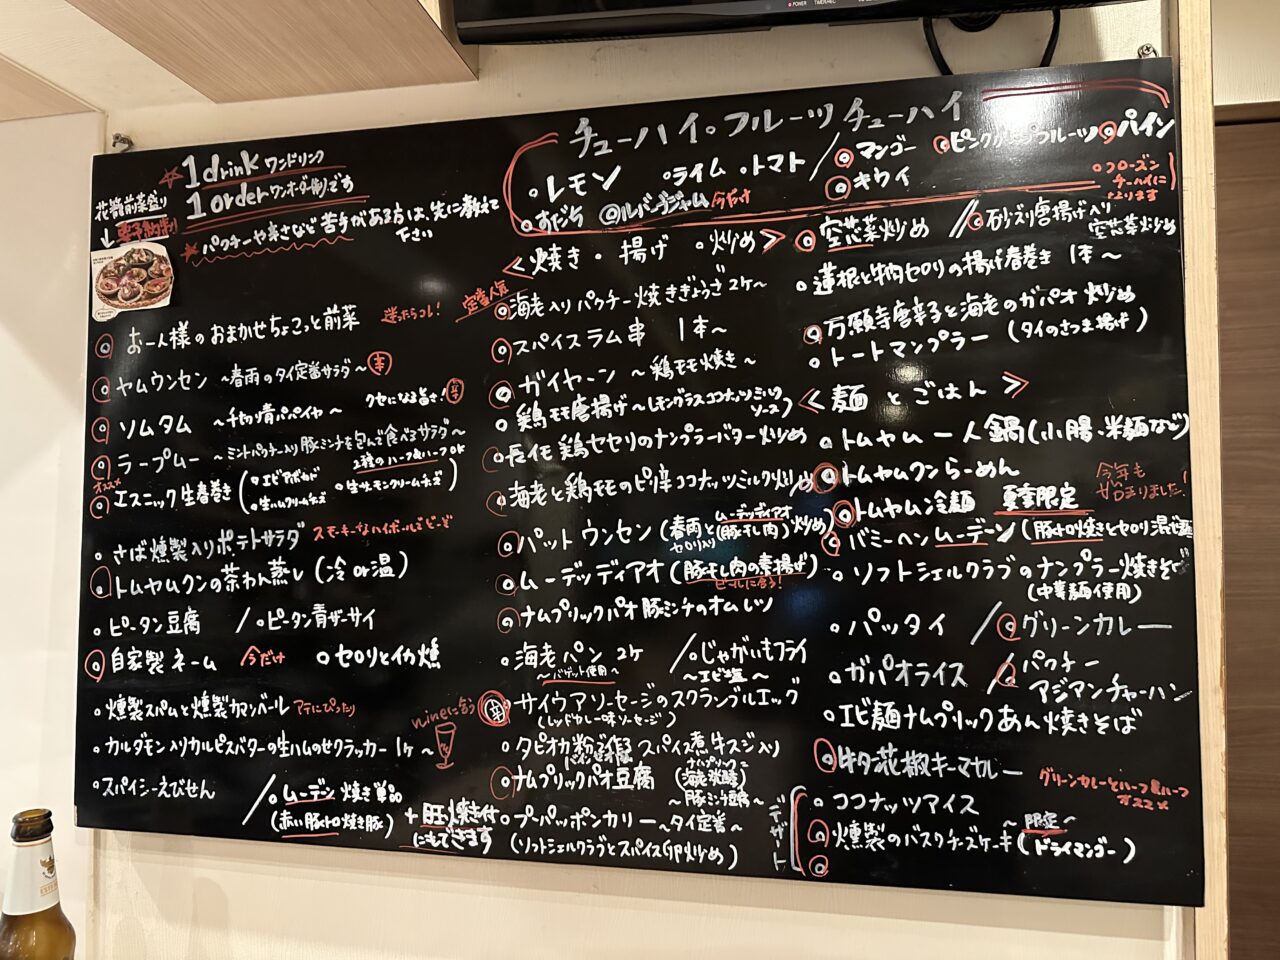 チューハイ・フルーツチューハイ
レモン ・ライム ・トマト / マンゴー ピンクグレープフルーツ パイン
すだち ルバーブジャム 今だけ キウイ
フローズンチューハイになります
★1drink ワンドリンク
1order ワンオーダー制です
★パクチーや辛さなど苦手がある方は、先に教えて下さい
花籠前菜盛り
↓要予約
お一人様のおまかせちょこっと前菜 迷ったらコレ!
ヤムウンセン 〜春雨のタイ定番サラダ〜 辛
ソムタム 〜千切り青パパイヤ〜 クセになる旨さ! 辛
ラープムー 〜ミントパクチー入り豚ミンチを包んで食べるサラダ〜
オススメ
エスニック生春巻き (・エビアボカド ・生ハムクリームチーズ ・生サーモンクリームチーズ) 2種のハーフ&ハーフOK
・さば燻製入りポテトサラダ スモーキーなハイボールでどーぞ
トムヤムクンの茶わん蒸し (冷or温)
・ピータン豆腐 /・ピータン青ザーサイ
自家製ネーム 今だけ ・セロリとイカ燻
・燻製スパムと燻製カマンベール アテにぴったり
・カルダモン入りカルピスバターの生ハムのせクラッカー 1ヶ〜 wineに合う
・スパイシーえびせん
/・ムーデン焼き単品 (赤い豚トロ焼き豚) +豚焼き付にもできます
<焼き・揚げ ・炒め>
定番人気
海老入りパクチー焼きぎょうざ2ヶ〜
スパイスラム串 1本〜
ガイヤーン 〜鶏モモ焼き〜
鶏モモ唐揚げ〜レモングラスココナッツミルクソース〜
長芋鶏セセリのナンプラーバター炒め
海老と鶏モモのピリ辛ココナッツミルク炒め
パットウンセン (春雨とムーデッディアオ(豚干し肉)炒め) セロリ入り
ムーデッディアオ (豚干し肉の素揚げ) ビールに合う!
ナムプリックパオ豚ミンチのオムレツ
・海老パン 2ヶ 〜バゲット使用〜 /・じゃがいもフライ 〜エビ塩〜
辛 サイウアソーセージのスクランブルエッグ (レッドカレー味ソーセージ)
・タピオカ粉 スパイス煮牛スジ入り
ナムプリックパオ豆腐 〜豚ミンチ豆腐〜
・プーパッポンカリー 〜タイ定番〜
(ソフトシェルクラブとスパイス卵炒め)
空芯菜炒め // 砂ズリ唐揚げ入り空芯菜炒め
・蓮根と牛肉セロリの揚げ春巻き 1本〜
万願寺唐辛子と海老のガパオ炒め
・トートマンプラー (タイのさつま揚げ)
<麺とごはん>
・トムヤム一人鍋 (小腸、米麺など)
トムヤムクンらーめん
トムヤム冷麺 夏季限定 今年も始まりました!
バミーヘンムーデーン (豚トロ焼きとセロリ混ぜ麺)
・ソフトシェルクラブのナンプラー焼きそば (中華麺使用)
・パッタイ / グリーンカレー
・ガパオライス / パクチーアジアンチャーハン
・エビ麺ナムプリックあん焼きそば
牛肉花椒キーマカレー グリーンカレーとハーフ&ハーフオススメ
デザート
・ココナッツアイス
燻製のバスクチーズケーキ 〜限定〜 (ドライマンゴー)